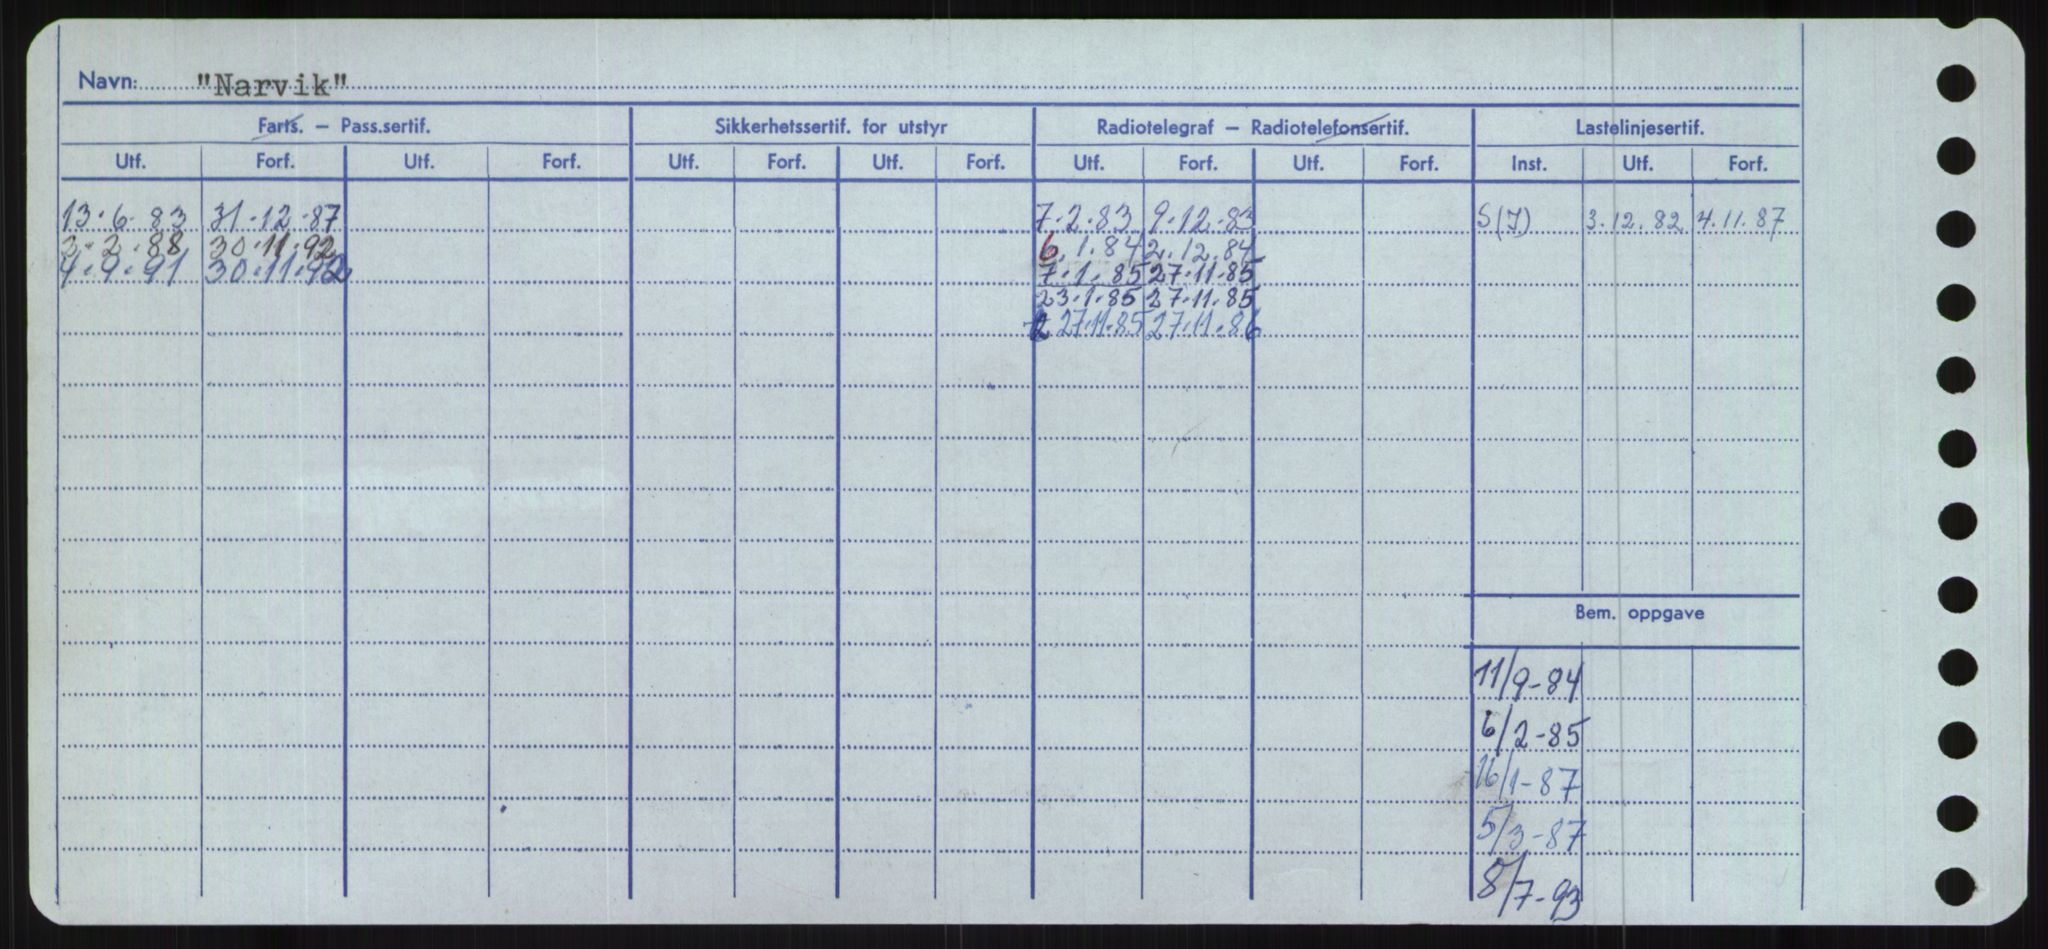 Navn: "Narvik"
Farts. – Pass.sertif. Sikkerhetssertif. for utstyr Radiotelegraf – Radiotelefonsertif. Lastelinjesertif.
Utf. Forf. Utf. Forf. Utf. Forf. Utf. Forf. Utf. Forf. Utf. Forf. Inst. Utf. Forf.
13.6.83 31.12.87 7.2.83 9.12.83 S(I) 3.12.82 4.11.87
3.2.88 30.11.92 6.1.84 2.12.84
4.9.91 30.11.92 7.1.85 27.11.85
23.1.85 27.11.85
27.11.85 27.11.86
Bem. oppgave
11/9-84
6/2-85
16/1-87
5/3-87
8/7-93